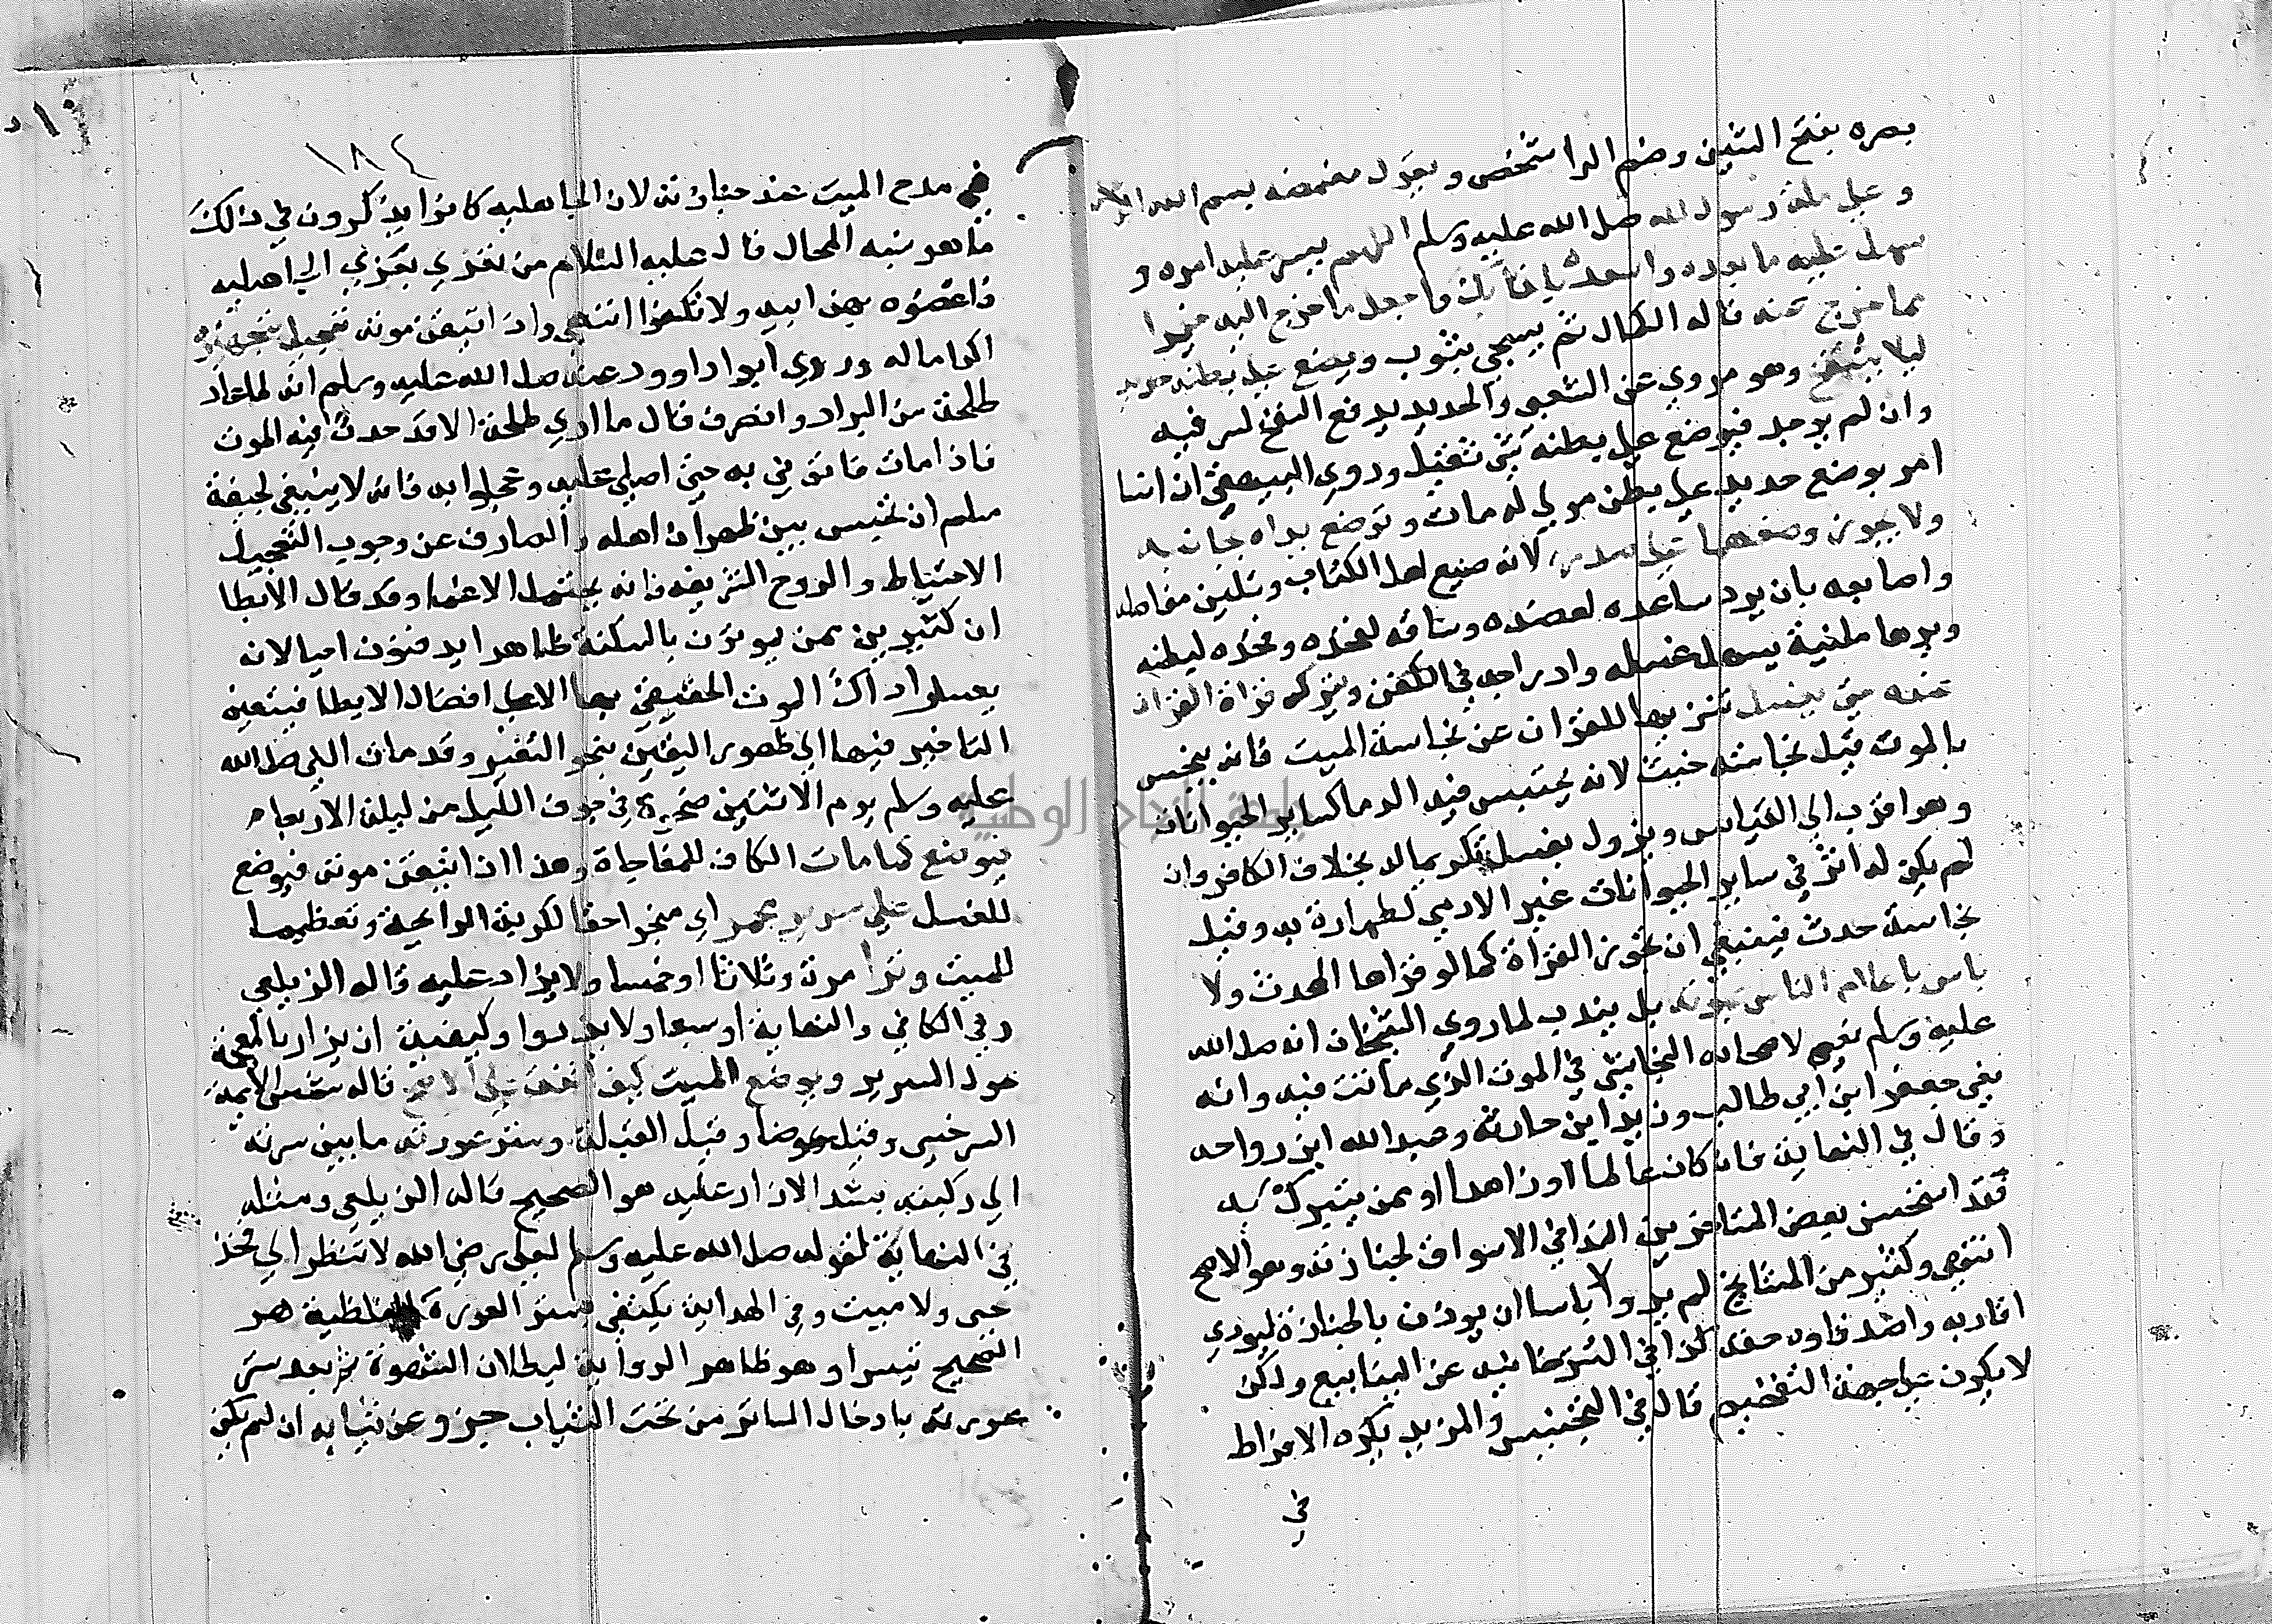 بصره بفتح الشين وضم الرا شخص ويقول مغمضه بسم الله
وعلى ملة رسول الله صلى الله عليه وسلم اللهم يسر عليه امره و
سهل عليه ما بعده واسعده بلقائك واجعل ما خرج اليه خيرا
مما خرج عنه قاله الكمال ثم يسجي بثوب ويوضع على بطنه حديد
ليلا ينتفخ وهو مروي عن الشعبي والحديد يدفع النفخ لسر فيه
وان لم يوجد فيوضع على بطنه شي ثقيل وروي البيهقي ان انسا
امر بوضع حديد على بطن مولي له مات وتوضع يداه بجانبه
ولا يجوز وضعهما على صدره لانه صنيع اهل الكتاب وتلين مفاصله
واصابعه بان يرد ساعده لعضده وساقه لفخذه وفخذه لبطنه
ويردها ملنية يسهل غسله وادراجه في الكفن وتكره قراة القران
عنده حتى يغسل تنزيها للقران عن نجاسة الميت فانه ينجس
بالموت قيل نجاسته خبث لانه يحتبس فيه الدما كساير الحيوانات
وهو اقرب الي القياس ويزول بغسل تكريما له بخلاف الكافر وان
لم يكن له اثر في ساير الحيوانات غير الادمي لطهارة به وقيل
نجاسة حدث فينبغي ان تجوز القراة كما لو قراها المحدث ولا
باس باعلام الناس بموته بل يندب لما روي الشيخان انه صلى الله
عليه وسلم نعي لاصحابه النجاشي في الموت الذي مات فيه وانه
نعي جعفر ابن ابي طالب وزيد ابن حارثة وعبد الله ابن رواحه
وقال في النهاية فان كان عالما او زاهدا او ممن يتبرك به
فقد استحسن بعض المتاخرين الندا في الاسواق لجنازته وهو الاصح
انتهي وكثير من المشايخ لم يروا باسا ان يوذن بالجنازة ليودي
اقاربه واصدقاوه حقه كذا في الشرنبلاليه عن الينابيع ولكن
لا يكون على جهة التفخيم قال في التجنيس والمزيد يكره الافراط
في
١٨٤
في مدح الميت عند جنازته لان الجاهليه كانوا يذكرون في ذلك
ما هو شبه المحال قال عليه السلام من تعزي بعزي الجاهليه
فاعضوه بهن ابيه ولا تكنوا انتهي واذا تيقن موته تعجيل تجهيزه
اكراما له وروي ابو داوود عنه صلى الله عليه وسلم انه لما عاد
طلحة بن البراد وانصرف قال ما اري طلحة الا قد حدث فيه الموت
فاذا مات فاتوني به حتى اصلي عليه وعجلوا به فانه لا ينبغي لجيفة
مسلم ان تحبس بين ظهران اهله والصارف عن وجوب التعجيل
الاحتياط والروح الشريفه فانه يحتمل الاغما وقد قال الاطبا
ان كثيرين ممن يموتون بالسكتة ظاهرا يدفنون احيا لانه
يعسر ادراك الموت الحقيقي بها الا على افضال الاطبا فيتعين
التاخير فيها الي ظهور اليقين بنحو التغير وقد مات النبي صلى الله
عليه وسلم يوم الاثنين ضحوة في جوف الليل من ليلة الاربعاء
فيوضع كما مات الكاف للمفاجاة وهذا اذا تيقن موته فيوضع
للغسل علي سرير مجمر اي مبخر اخفا لكريه الرايحة وتعظيما
للميت وترا مرة وثلاثا او خمسا ولا يزاد عليه قاله الزيلعي
وفي الكافي والنهاية او سبعا ولا يزيدوا وكيفيته ان يدار بالمجمرة
حول السرير ويوضع الميت كيف اتفق على الاصح قاله شمس الايمة
السرخسي وقيل عرضا وقيل القبلة وستر عورته ما بين سرته
الي ركبته بشد الازار عليه هو الصحيح قاله الزيلعي ومثله
في النهاية لقوله صلى الله عليه وسلم لعلي رضي الله لا تنظر الي فخذ
حي ولا ميت وفي الهداية يكتفي بستر العورة الغلظية هو
الصحيح تيسرا وهو ظاهر الرواية لبطلان الشهوة ثم بعد ستر
عورته بادخال الساتر من تحت الثياب جرد عن ثيابه ان لم يكن